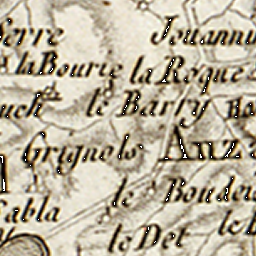 Serre
Jouannin
la Bourie
la Roque
ouch
le Barry
Grignols
Anz
le Boudou
Sabla
le Det
le